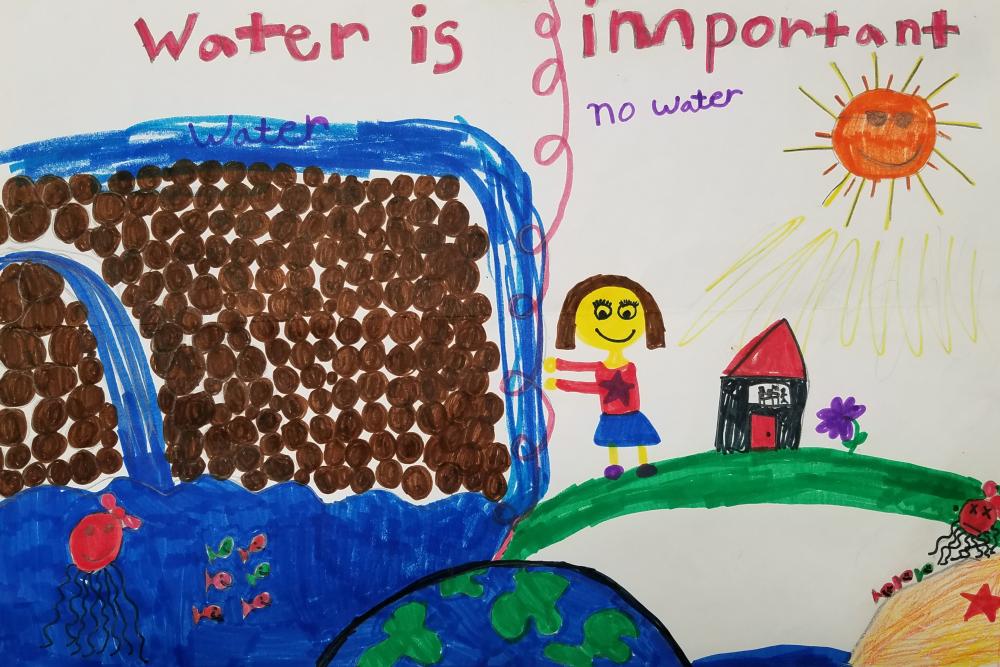 Water is important
no water
Water